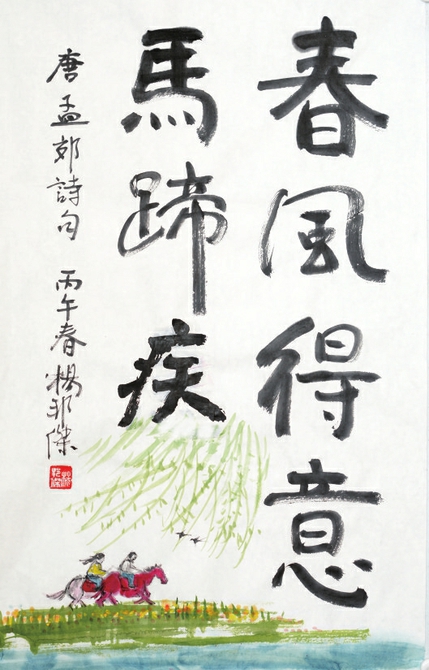 春風得意
馬蹄疾
唐孟郊詩句 丙午春楊邦傑